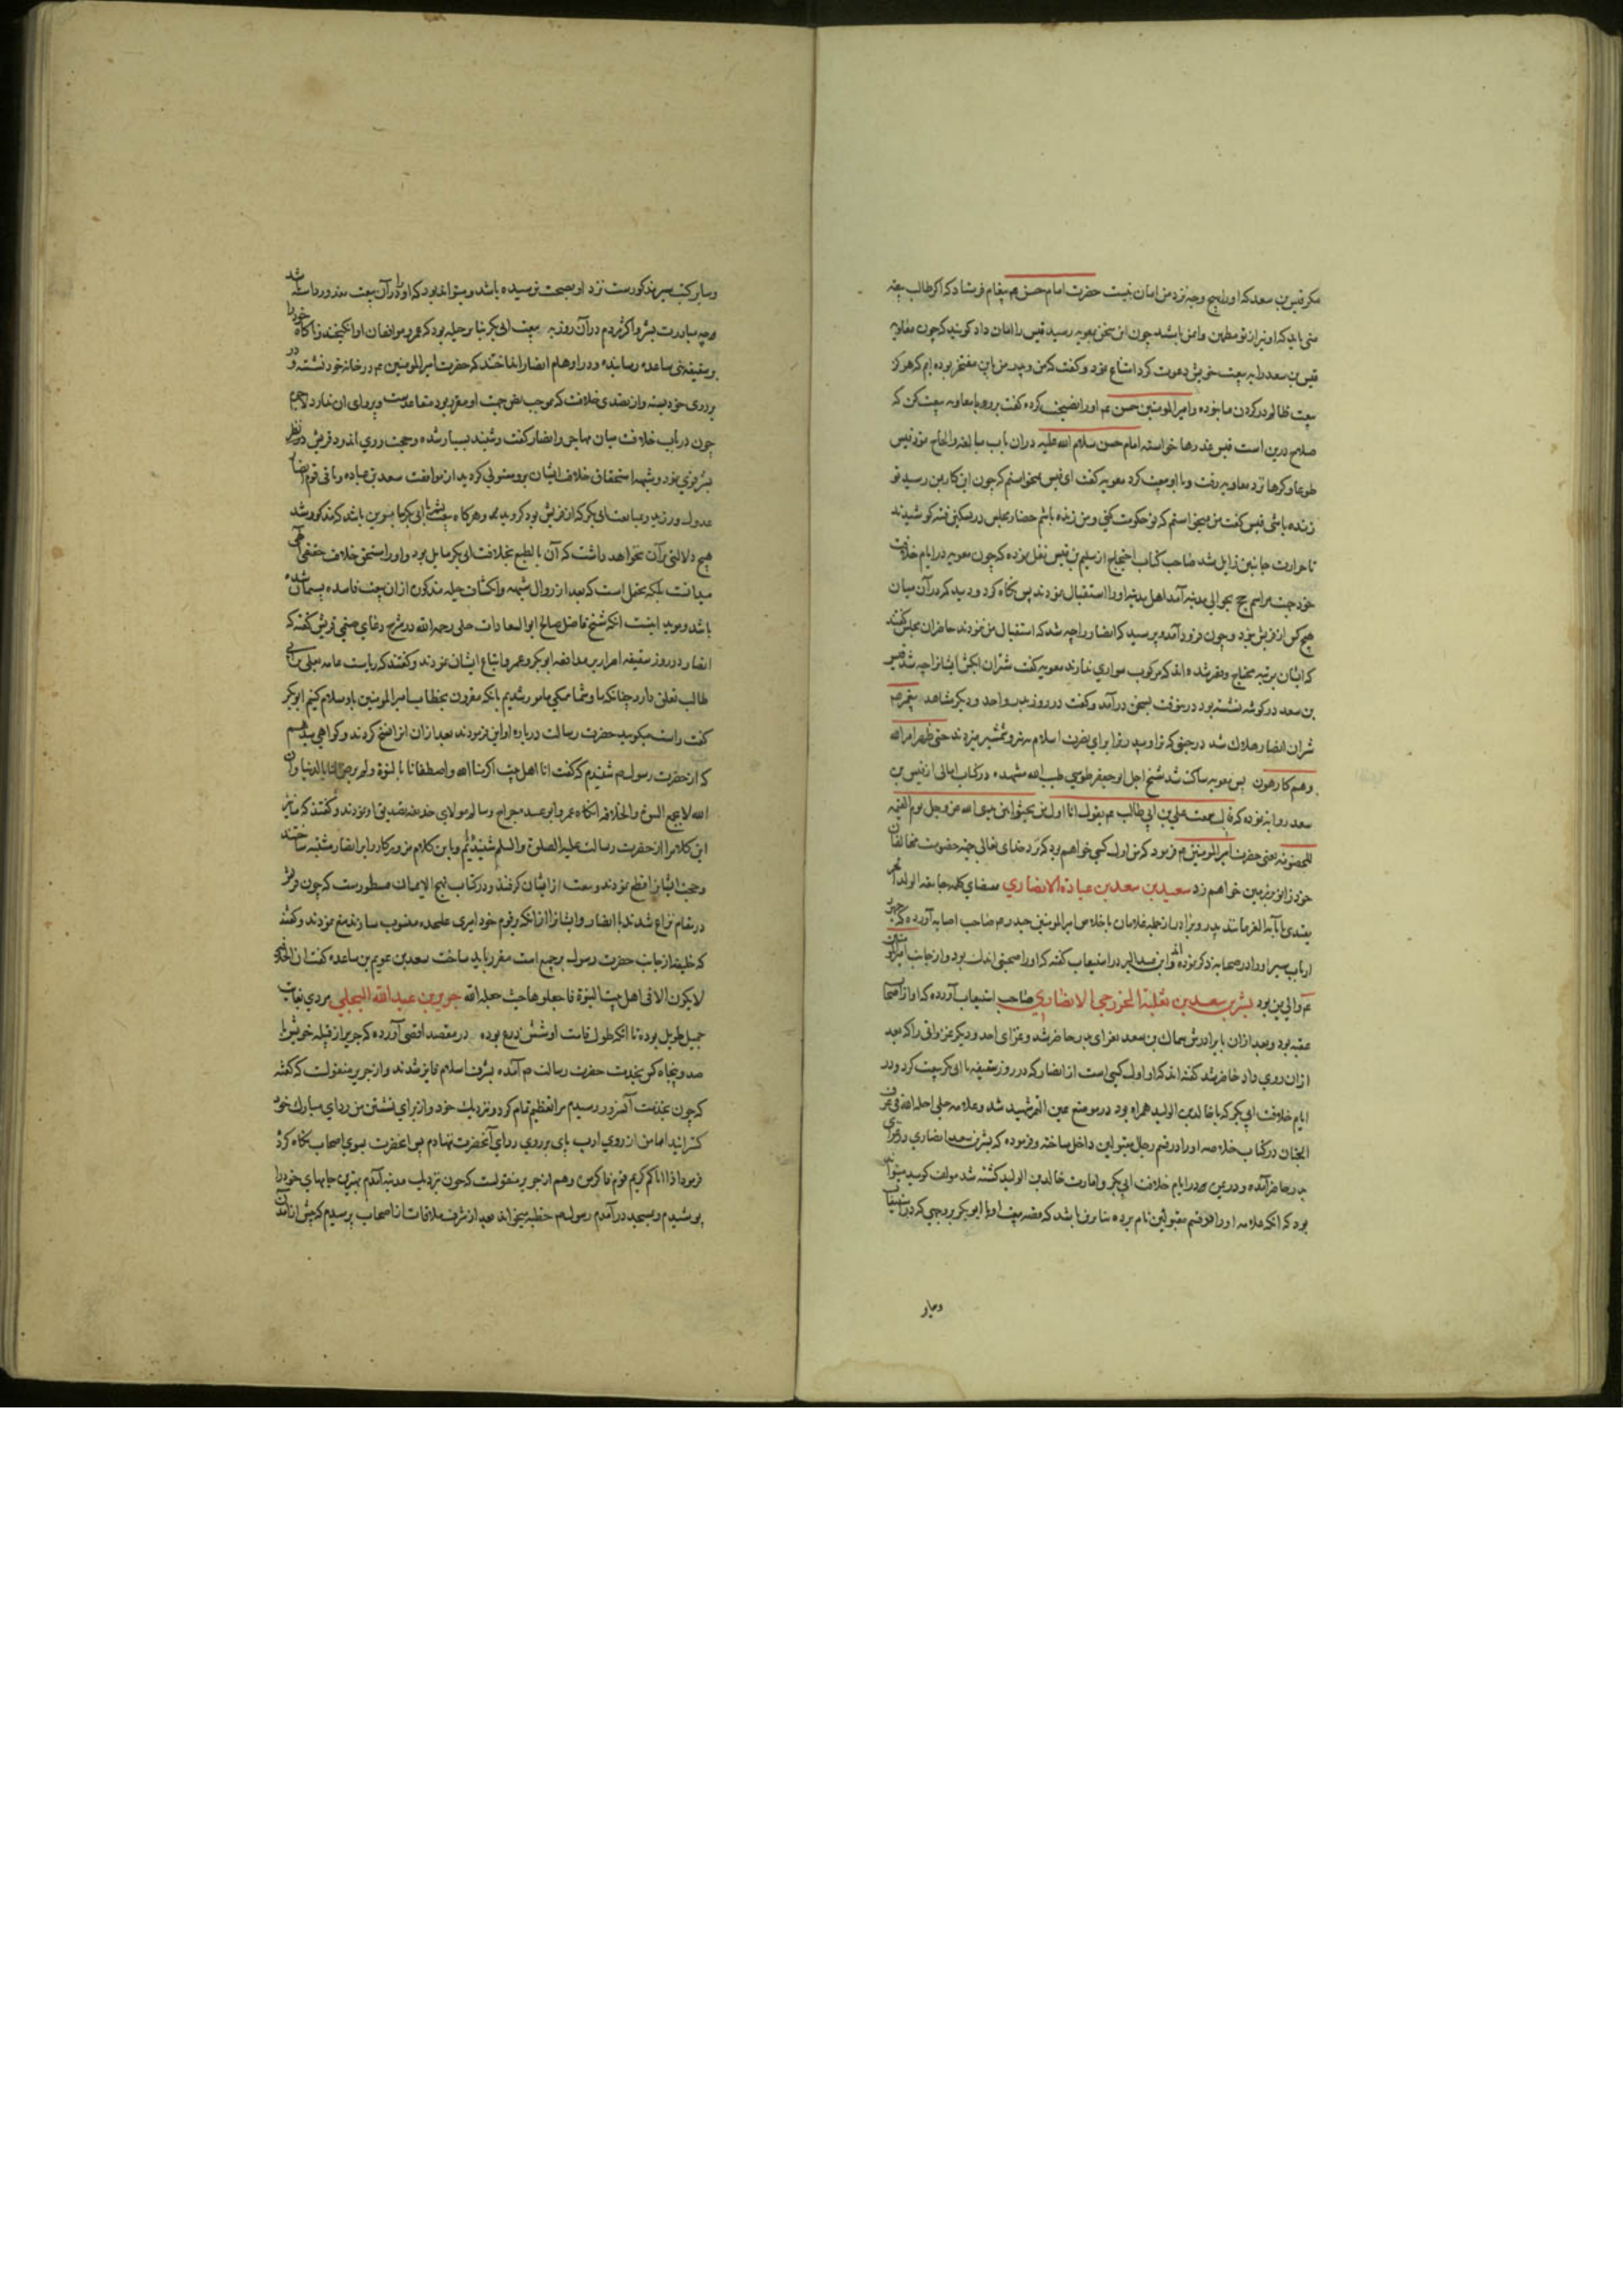 مکر قیس بن سعد که او را هیچ وجه نزد من امان نیست حضرت امام حسن عم پیغام فرستاد که اگر طالب بیعت
منی باید که او نیز از تو مطمئن و ایمن باشد چون این سخن بمعویه رسید قیس را امان داد کویند که چون معاویه
قیس بن سعد را به بیعت خویش دعوت کرد امتناع نمود و کفت که من و پدر من باین مفتخر بوده ایم که هرکز
بیعت ظالم در کردن ما نبوده و امیر المومنین حسن عم او را نصیحت کرده کفت برو و با معاویه بیعت کن که
صلاح درین است قیس عذرها خواسته امام حسن سلام الله علیه دران باب مبالغه و الحاح نمود قیس
طوعا و کرها نزد معاویه رفت و با او بیعت کرد معویه کفت ای قیس نمیخواستم که چون این کار بمن رسید تو
زنده باشی قیس کفت من نمیخواستم که تو حکومت کنی و من زنده باشم حضار مجلس در تسکین فتنه کوشیدند
تا حرارت جانبین زایل شد صاحب کتاب احتجاج از سلیم بن قیس نقل نموده که چون معویه در ایام خلافت
خود جهت مراسم حج بحوالی مدینه آمد اهل مدینه او را استقبال نمودند پس نکاه کرد و دید که در آن میان
هیچ کس از قریش نبود و چون فرود آمد و پرسید که انصار را چه شد که استقبال من نمودند حاضران مجلس کفتند
که ایشان بمرتبه محتاج و فقیر شده اند که مرکوب سواری ندارند معویه کفت شتران آبکش ایشانرا چه شد قیس
بن سعد در کوشه نشسته بود در نوقت بسخن در آمد و کفت در روز بدر و احد و دیگر مشاهد پیغمبر صم
شتران انصار هلاک شد در حینی که ترا و پدر ترا برای نصرت اسلام بنیزه و شمشیر میزدند حتی ظهر امر الله
وهم کارهون پس معویه ساکت شد شیخ اجل ابو جعفر طوسی طیب الله مشهده در کتاب امالی از قیس بن
سعد روایه نموده که قال سمعت علی بن ابی طالب عم یقول انا اول من یجثوا بین یدی الله عز و جل یوم القیمه
للخصومه یعنی حضرت امیر المومنین عم فرمود که من اول کسی خواهم بود که نزد خدای تعالی جهة خصومت مخالفان
خود زانو بر زمین خواهم زد سعید بن سعد بن عبادة الانصاری بمقتضای کلمه جامعه الولد الحر
یقتدی بابآئه الغر مانند پدر و برادر از جمله غلامان با خلاص امیر المومنین حیدر عم صاحب اصابه آورده که
ارباب سیر او را در صحابه ذکر نموده اند و ابن عبد البر در استیعاب کفته که او را صحبتی اندک بود و از جانب امیر المومنین
عم والی یمن بود بشر بن سعد بن ثعلبة الخزرجی الانصاری صاحب استیعاب آورده که او از اصحاب
عقبه بود و بعد ازان با برادرش سماک بن سعد بغزای بدر حاضر شد و غزای احد و دیگر غزواتی را که بعد
ازان روی داد حاضر شد کفته اند که او اول کسی است از انصار که در روز سقیفه با ابی بکر بیعت کرد و در
ایام خلافت ابی بکر که با خالد بن الولید همراه بود در موضع عین التمر شهید شد و علامه حلی احله الله فی غرف
الجنان در کتاب خلاصه او را در قسم رجال مقبولین داخل ساخته و فرموده که بشر بن سعد انصاری در غزای
بدر حاضر آمده و در عین تمر در ایام خلافت ابی بکر و امارت خالد بن الولید کشته شد مولف کوید میتواند
بود که انکه علامه او را در قسم مقبولین نام برده بنا بران باشد که قصه بیعت او با ابو بکر بروجهی که در استیعاب
و سایر
و سایر کتب سیر مذکورست نزد او بصحت نرسیده باشد و میتواند بود که او را درآن بیعت معذور داشته باشد
چه مبادرت بشر و اکثر مردم در آن روز به بیعت ابی بکر بنا بر حیله بود که عمر و موافقان او انکیختند و ناکاه خود را
بر سقیفه بنی ساعده رسانیده و در اوهام انصار انداختند که حضرت امیر المومنین عم در خانه خود نشسته و در
بر روی خود بسته و از تصدی خلافت که بموجب نص جهت او مقرر بود متقاعدست و پروای ان ندارد لاجرم
چون در باب خلافت میان مهاجر و انصار کفت و شنید بسیار شده و حجت روی اندود قریش در نظر
بشر قوی نمود و شبهه استحقاق خلافت ایشان بر و مستولی کردید از موافقت سعد بن عباده و باقی قوم انصار
عدول ورزید و بمبایعت ابی بکر که از قریش بود کروید و هرکاه بیعت بشر با ابی بکر باین وجه باشد که مذکور شد
هیچ دلالتی برآن نخواهد داشت که آن بالطبع بخلافت ابی بکر مایل بود و او را مستحق خلافت حقیقی الهی
میدانست بلکه محتمل است که بعد از زوال شبهه و انکشاف حیله مذکوره ازان بیعت فاسده پشیمان شده
باشد و موید اینست انکه شیخ فاضل صالح ابو السعادات حلی رحمه الله در شرح دعای صنمی قریش کفته که
انصار در روز سقیفه اصرار بر مدافعه ابو بکر و عمر و اتباع ایشان نمودند و کفتند که ریاست عامه بعلی بن ابی
طالب تعلق دارد چنانکه ما و شما همکی مامور شدیم بانکه مقرون بخطاب امیر المومنین باو سلام کنیم ابو بکر
کفت راست میکویید حضرت رسالت درباره او این فرمودند بعد ازان انرا نسخ کردند و کواهی میدهم
که از حضرت رسول صم شنیدم که کفت انا اهل بیت اکرمنا الله و اصطفانا بالنبوة ولم یرض لنا بالدنیا و ان
الله لا یجمع لنا النبوة و الخلافة انکاه عمر و ابو عبیده جراح و سالم مولای حذیفه تصدیق او نمودند و کفتند که ما نیز
این کلام را از حضرت رسالت علیه الصلوة و السلم شنیدیم و باین کلام مزور کار را بر انصار مشتبه ساختند
و حجت ایشانرا قطع نمودند و بیعت از ایشان کرفتند و در کتاب نهج الایمان مسطورست که چون قریش
در مقام نزاع شدند با انصار و ایشانرا از انکه از قوم خود امیری علیحده منصوب سازند منع نمودند و کفتند
که خلیفه از جانب حضرت رسول بر جمیع امت مقرر باید ساخت سعد بن عویم بن ساعده کفت ان الخلافة
لا یکون الا فی اهل بیت النبوة فاجعلوها حیث جعله الله جریر بن عبد الله البجلی مردی بغایت
جمیل طویل بوده تا انکه طول قامت او شش ذرع بوده در مقصد اقصی آورده که جریر از قبیله خویش با
صد و پنجاه کس بخدمت حضرت رسالت صم آمده بشرف اسلام فایز شدند و از جریر منقولست که کفته
که چون بخدمت آنسرور رسیدم مرا تعظیم تمام کرد و نزدیک خود و از برای نشستن من ردای مبارک خود
کسترانید اما من از روی ادب پای بر روی ردای آنحضرت ننهادم پس آنحضرت بسوی اصحاب نکاه کرد
فرمود اذا اتاکم کریم قوم فاکرموه و هم از جریر منقولست که چون نزدیک مدینه آمدم بهترین جامهای خود را
پوشیدم و بمسجد در آمدم رسول صم خطبه میخواند بعد از شرف ملاقات از اصحاب پرسیدم که پیش از آمدن